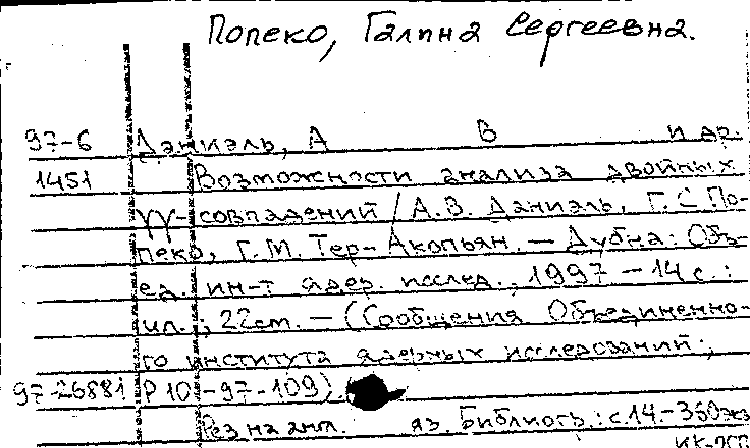 Попеко, Галина Сергеевна.
97-6 Даниэль, А В и др.
1451 Возможности анализа двойных
γγ-совпадений / А.В. Даниэль, Г.С По-
пеко, Г.М. Тер-Акопьян. — Дубна: Объ-
ед. ин-т ядер. исслед., 1997 — 14 с.:
ил.; 22см. — (Сообщения Объединенно-
го института ядерных исследований;
97-26881 Р10-97-109)
Рез на англ. яз. Библиогр.: с.14.-350экз